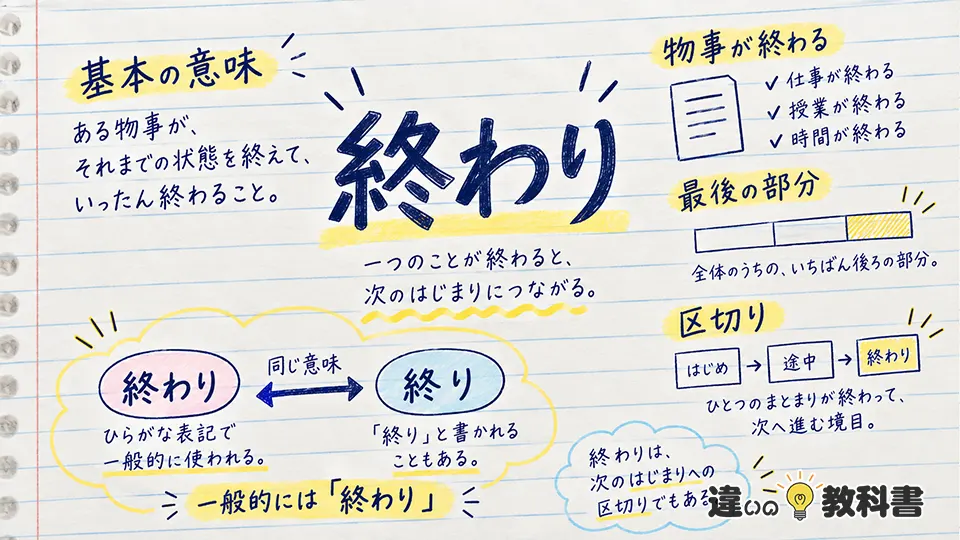 基本の意味
ある物事が、
それまでの状態を終えて、
いったん終わること。
終わり
一つのことが終わると、
次のはじまりにつながる。
物事が終わる
✓ 仕事が終わる
✓ 授業が終わる
✓ 時間が終わる
最後の部分
全体のうちの、いちばん後ろの部分。
区切り
はじめ → 途中 → 終わり
ひとつのまとまりが終わって、
次へ進む境目。
終わり
同じ意味
終り
ひらがな表記で
一般的に使われる。
「終り」と書かれる
こともある。
一般的には「終わり」
終わりは、
次のはじまりへの
区切りでもある
違いの教科書